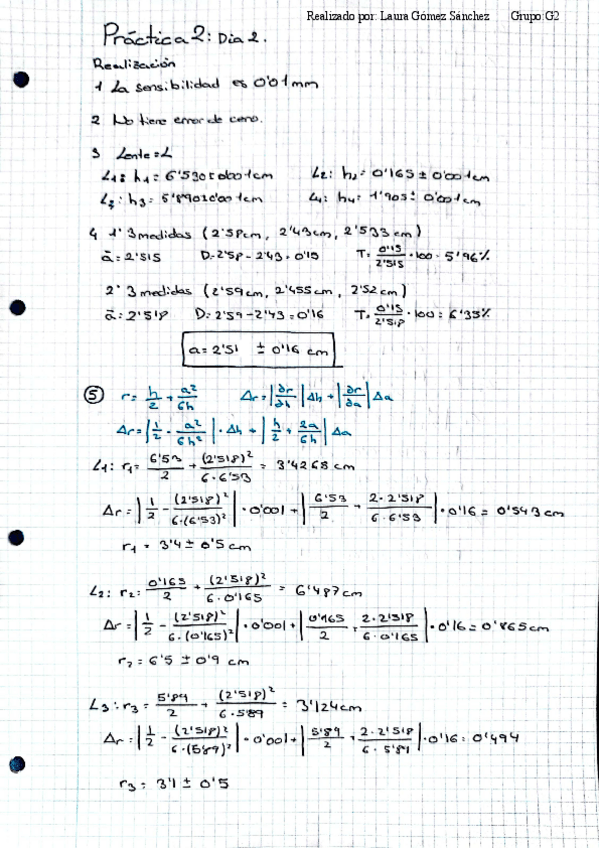 Realizado por: Laura Gómez Sánchez Grupo:G2
Práctica 2: Dia 2.
Realización
1 La sensibilidad es 0'01mm
2 No tiene error de cero.
3 Lente = L
L1: h1 = 6'530±0'001cm L2: h2 = 0'165 ± 0'001cm
L3: h3 = 5'890±0'001cm L4: h4 = 1'905 ± 0'001cm
4 1ª 3 medidas (2'58cm, 2'43cm, 2'533cm)
ā = 2'515 D = 2'58 - 2'43 = 0'15 T = 0'15/2'515 · 100 = 5'96%
2ª 3 medidas (2'59cm, 2'455cm, 2'52cm)
ā = 2'518 D = 2'59 - 2'43 = 0'16 T = 0'15/2'518 · 100 = 6'35%
a = 2'51 ± 0'16 cm
5 r = h/2 + a²/6h Δr = |∂r/∂h| Δh + |∂r/∂a| Δa
Δr = |1/2 - a²/6h²| · Δh + |h/2 + 2a/6h| Δa
L1: r1 = 6'53/2 + (2'518)²/6·6'53 = 3'4268 cm
Δr = |1/2 - (2'518)²/6·(6'53)²| · 0'001 + |6'53/2 + 2·2'518/6·6'53| · 0'16 = 0'543 cm
r1 = 3'4 ± 0'5 cm
L2: r2 = 0'165/2 + (2'518)²/6·0'165 = 6'487cm
Δr = |1/2 - (2'518)²/6·(0'165)²| · 0'001 + |0'165/2 + 2·2'518/6·0'165| · 0'16 = 0'865cm
r2 = 6'5 ± 0'9 cm
L3: r3 = 5'89/2 + (2'518)²/6·5'89 = 3'124cm
Δr = |1/2 - (2'518)²/6·(5'89)²| · 0'001 + |5'89/2 + 2·2'518/6·5'89| · 0'16 = 0'494
r3 = 3'1 ± 0'5